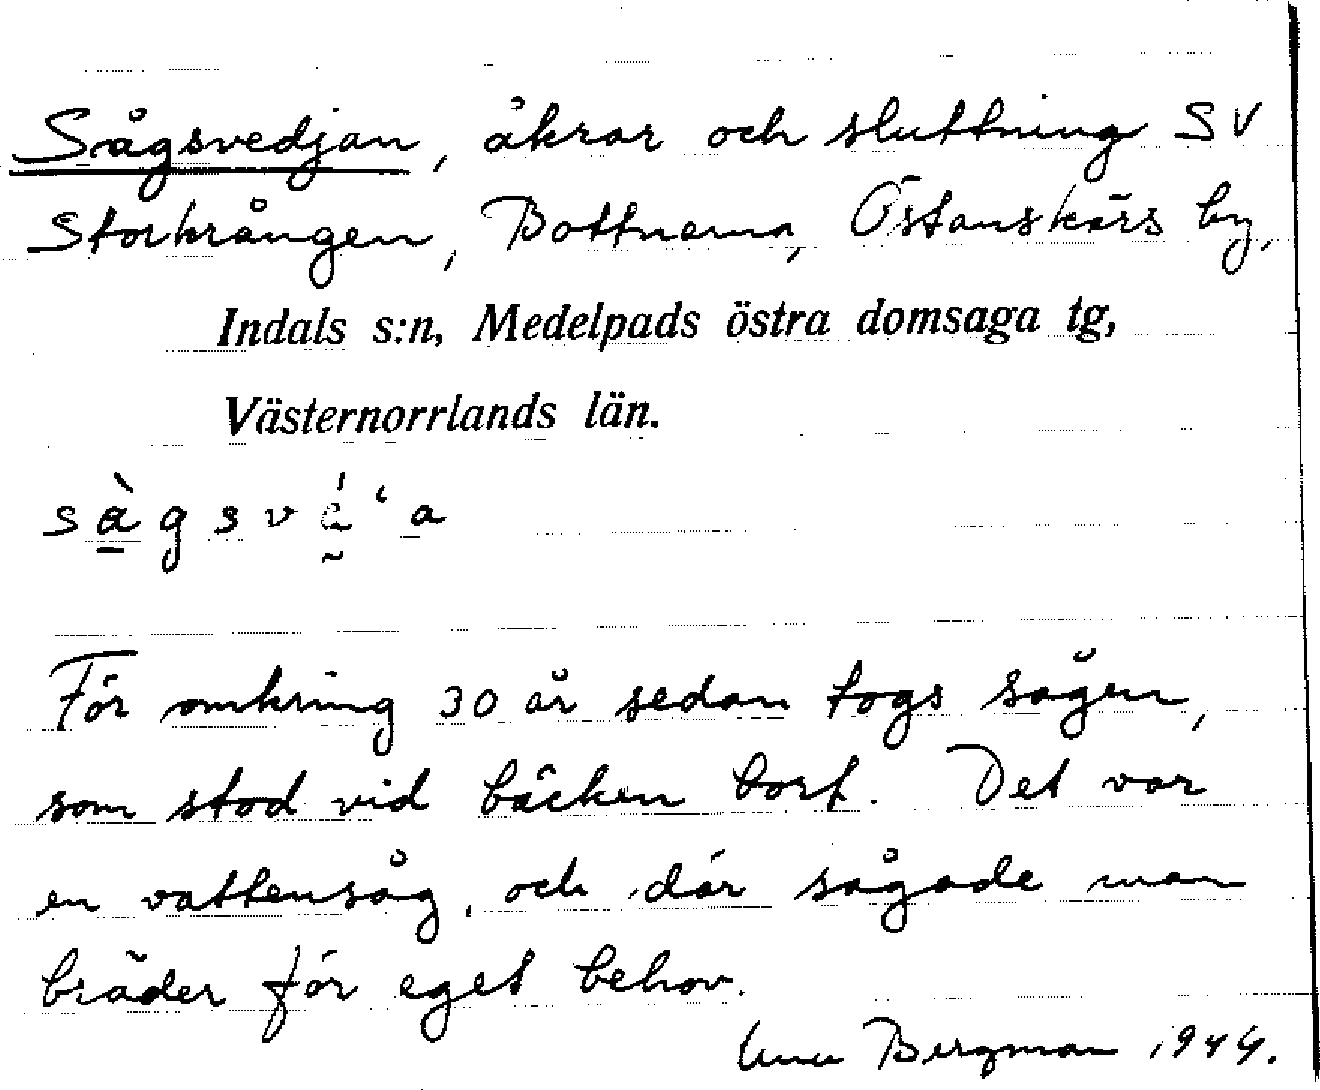 Sågsvedjan, åkrar och sluttning SV
Storkrången, Bottnarna, Östanskärs by,
Indals s:n, Medelpads östra domsaga tg,
Västernorrlands län.
För omkring 30 år sedan togs sågen,
som stod vid bäcken bort. Det var
en vattensåg, och där sågade man
bräder för eget behov.
Bergman 1944.